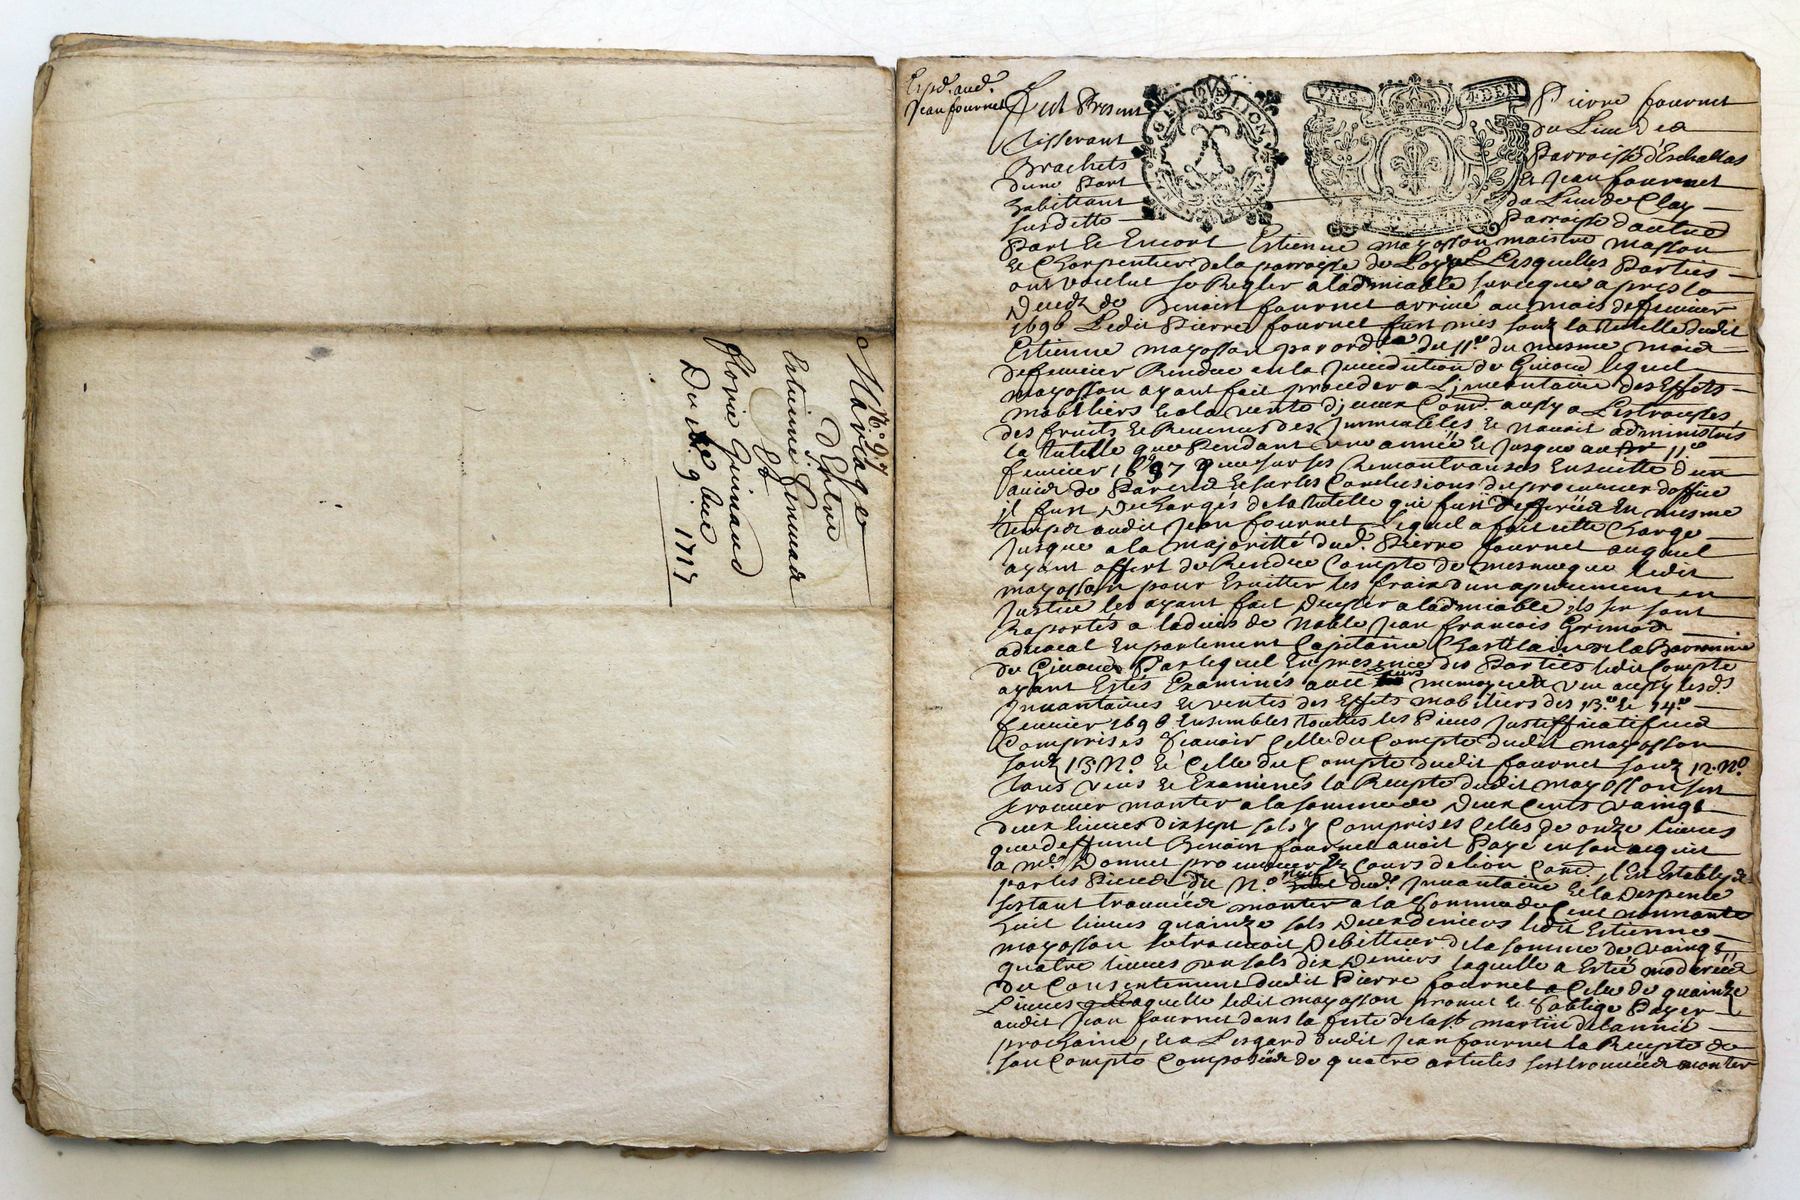 N.° 97
Mariage
D'Entre
Estienne
Et
Florie Guinand
Du 9.e 1717
Exped. aud.
Jean fournet
GEN.
VN. S. 4. DEN
fut Present Pierre fournet
tisserant du Lieu des
Brachets Parroisse d'Eschallas
dune Part et Jean fournet
habittant du Lieu de Clay
susditte Parroisse d'autre
Part Et Encort Estienne mayosson maistre masson
Et Charpentier de la parroisse de Loyre Lesquelles Parties
ont voulut se Regler a l'admiable sur ceque apres le
Decedz de Benoist fournet arrivé au mois de feuvrier
1696 Ledit Pierre fournet fust mis souz la tutelle dudit
Estienne mayosson par ord.ce du 11.e du mesme mois
de feuvrier Rendue en la Jurisdiction de Givord lequel
mayosson ayant fait proceder a L'jnventaire des Effets
mobiliers et a la vente d'jceux Comme aussy a Lestrousses
des fruits Et Revenus des Jmmeubles Et n'auoit administré
la tutelle que Pendant vne année Et jusque au 11.e
feuvrier 1697 que sur ses Remontrances Ensuitte d'un
auis de Parens Et sur les Conclusions du procureur doffice
il fust deschargés de la tutelle qui fust defferée En mesme
temps audit Jean fournet lequel a fait cette Charge
Jusque a la majoritté dud. Pierre fournet auquel
ayant offert de Rendre Compte de mesme que ledit
mayosson pour Euitter les fraix d'un apurement en
Justice les ayant fait Dresser a l'admiable ils se sont
Raportés a l'aduis de Noble Jean francois Grimod
aduocat En parlement Capitaine Chastelain de la Baronnie
de Givord Par lequel En presence des Parties ledit Compte
ayant Estés Examinés auec leurs memoyres Veu aussy lesd.
Jnuantaires et ventes des Effets mobiliers des 13.e Et 14.e
feuvrier 1696 Ensembles touttes les Pieces Justifficatifues
Comprises Scauoir Celle du Compte dudit mayosson
souz 13 N.o Et Celle du Compte dudit fournet souz 12. N.o
tous veus Et Examinés la Recepte dudit mayosson sest
trouuée monter a la somme de Deux Cents vaingt
deux liures dixsept sols y Comprises Celles de onze liures
que deffunct Benoist fournet auoit Payé en son acquit
a M.e Donnet procureur Ez Cours de lion Comme jl En Establyt
par les Pieces du N.o neuf dud. Jnuantaire Et la Despence
sestant trouuée monter a la somme de Cent nonnante
huit liures quainze sols Deux deniers ledit Estienne
mayosson se trouuoit Debitteur de la somme de vaingt
quatre liures vn sols dix Deniers laquelle a Estté moderée
du Consentement dudit Pierre fournet a Celle de quainze
Liures laquelle ledit mayosson promet Et s'oblige Payer
audit Jean fournet dans la feste de la st. martin de lannée
prochaine, Et a L'esgard dudit Jean fournet la Recepte de
son Compte Composée de quatre articles sest trouuée monter